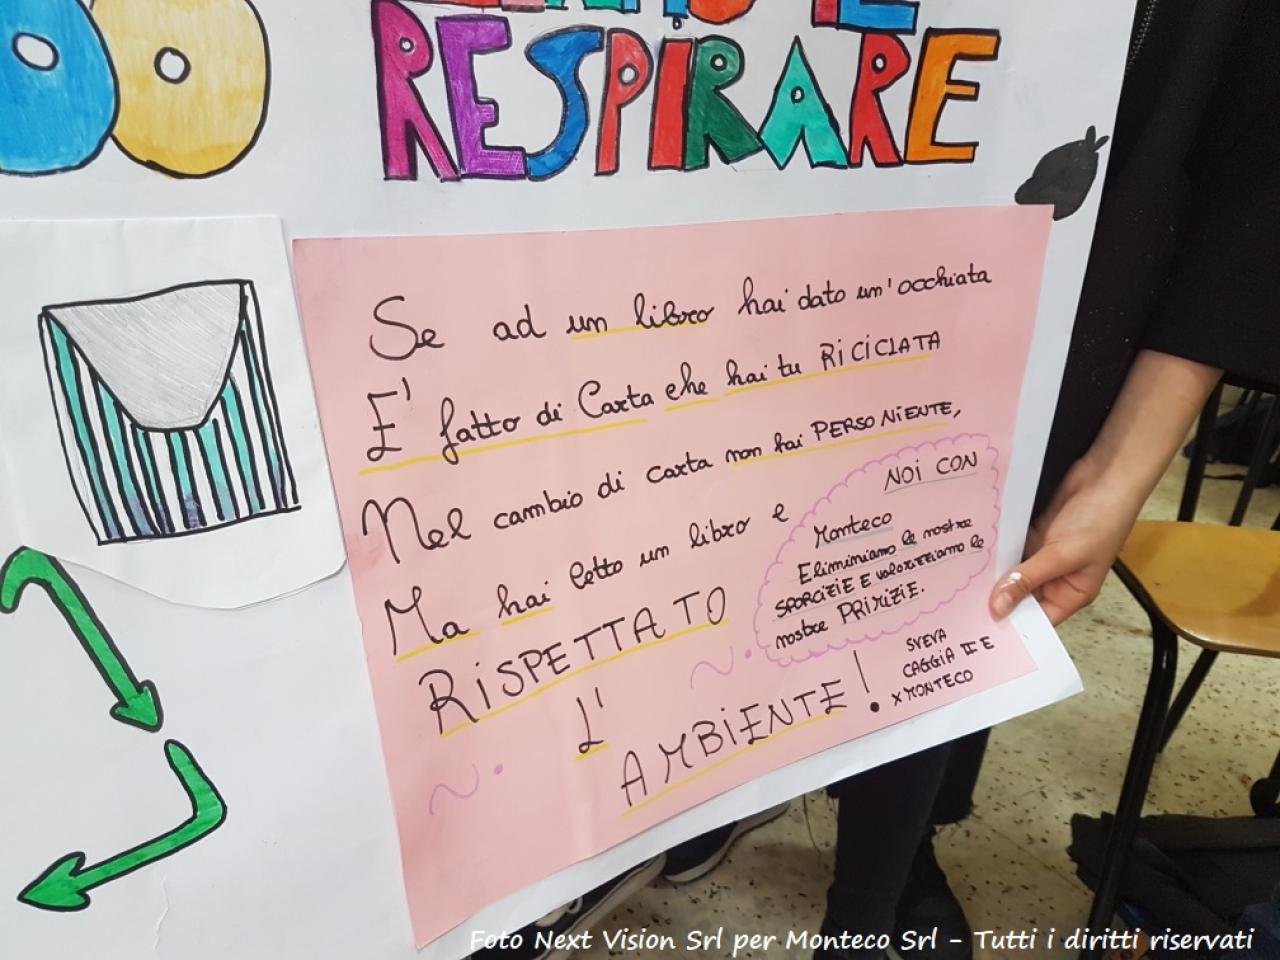 RESPIRARE
Se ad un libro hai dato un'occhiata
E' fatto di Carta che hai tu RICICLATA
Nel cambio di carta non hai PERSO NIENTE,
Ma hai letto un libro e
RISPETTATO
L'
AMBIENTE!
NOI CON
Monteco
Eliminiamo le nostre
SPORCIZIE E valorizziamo le
nostre PRIMIZIE.
SVEVA
CAGGIA II E
X MONTECO
Foto Next Vision Srl per Monteco Srl - Tutti i diritti riservati